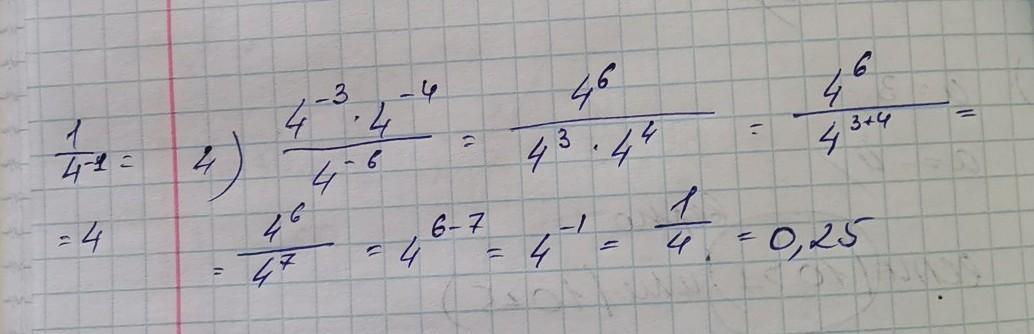 1/4⁻¹ = 4) (4⁻³ · 4⁻⁴)/4⁻⁶ = 4⁶/(4³ · 4⁴) = 4⁶/4³⁺⁴ =
= 4 = 4⁶/4⁷ = 4⁶⁻⁷ = 4⁻¹ = 1/4 = 0,25